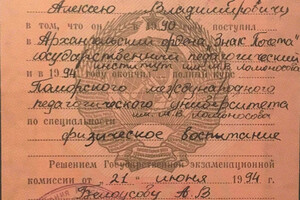 Алексею Владимировичу
в том, что он в 1990 году поступил
в Архангельский ордена "Знак Почета"
государственный педагогический
институт им. М.В. Ломоносова
и в 1994 году окончил полный курс
Поморского международного
педагогического университета
им. М.В. Ломоносова
по специальности
физическое воспитание
Решением Государственной экзаменационной
комиссии от "21" июня 1994 г.
Белоусову А. В